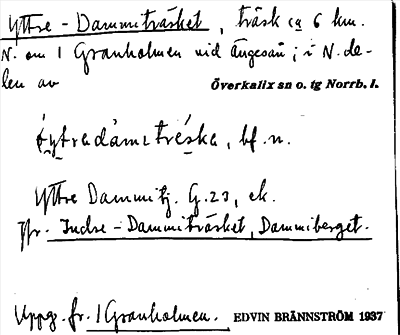 Yttre - Dammiträsket, träsk ca 6 km.
N. om 1 Granholmen vid Ängesån; i N. de-
len av Överkalix sn o. tg Norrb. l.
ýtradàmitréska, bf. n.
Yttre Dammitj. G. 23, ek.
Jfr. Indre - Dammiträsket, Dammiberget.
Uppg. fr. 1 Granholmen. EDVIN BRÄNNSTRÖM 1937